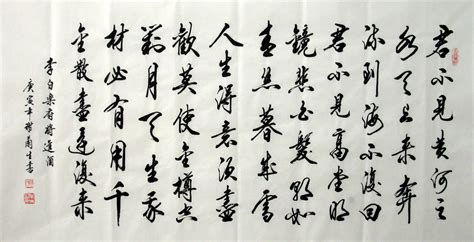 君不見黃河之
水天上来奔
流到海不復回
君不見高堂明
鏡悲白髮朝如
青絲暮成雪
人生得意須盡
歡莫使金樽空
對月天生我
材必有用千
金散盡還復来
李白樂府將進酒
庚寅年 生書